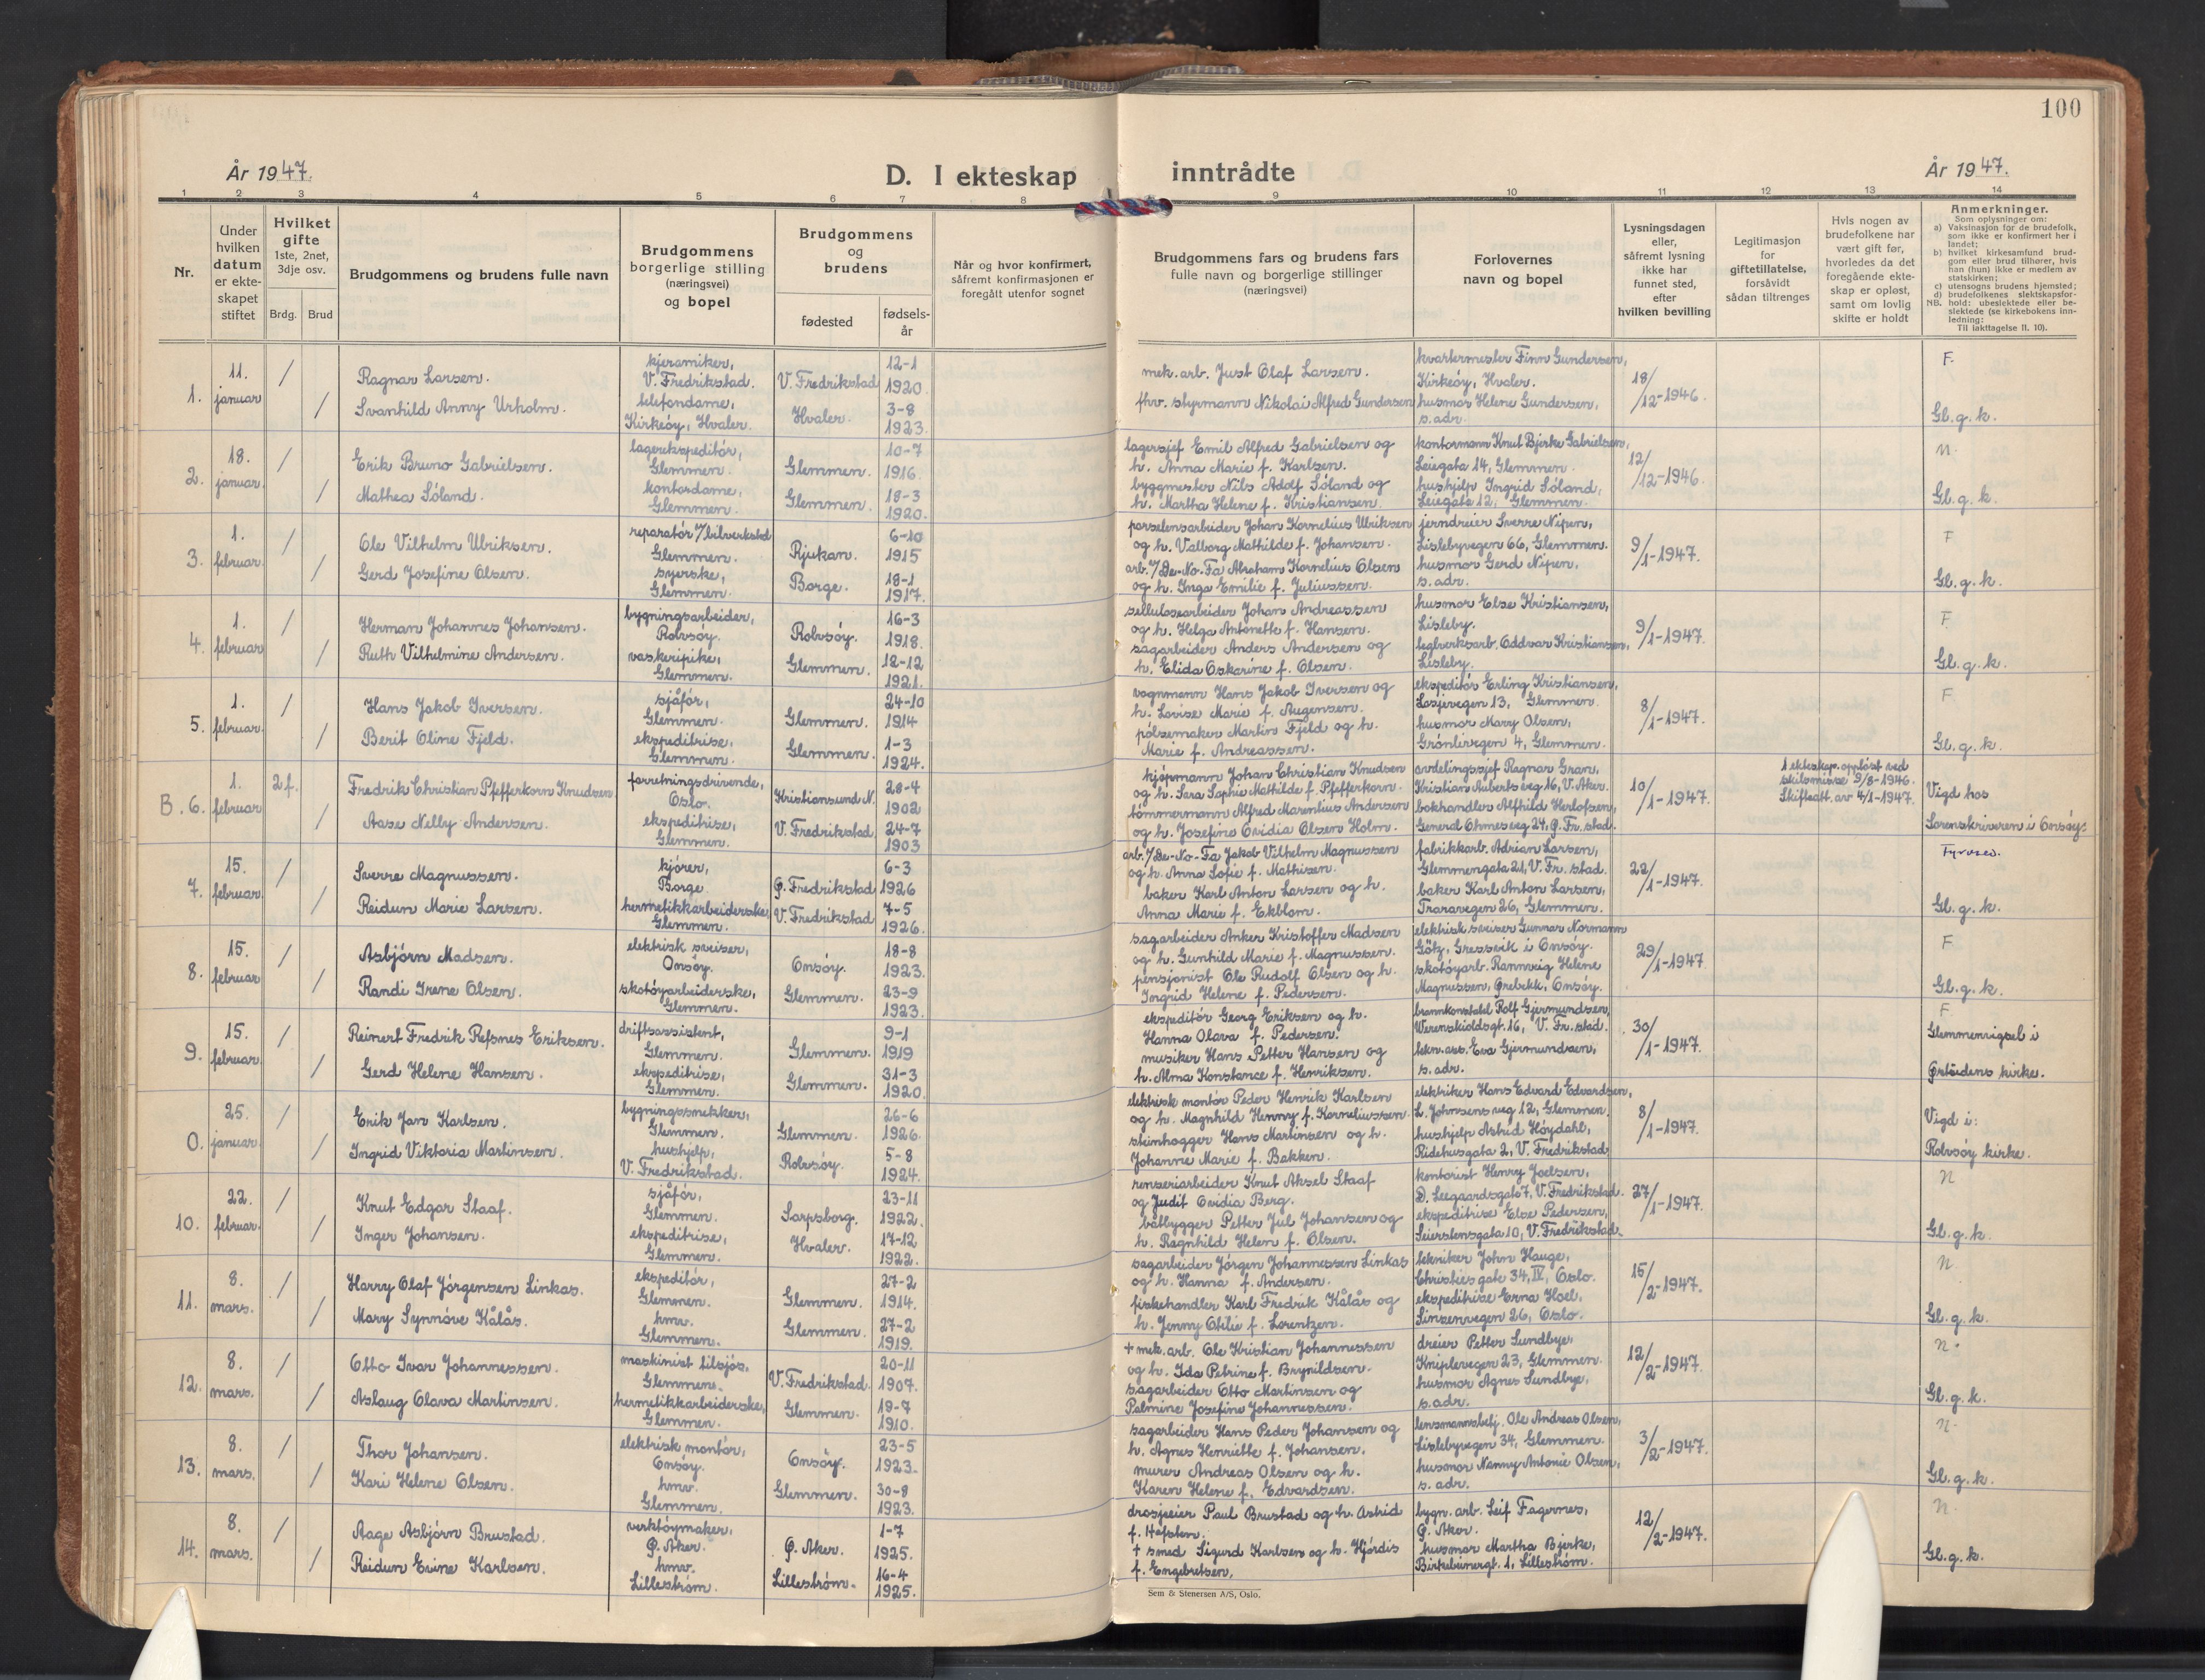 100
År 1947.
D. I ekteskap inntrådte
År 1947.
1 2 3 4 5 6 7 8 9 10 11 12 13 14
Nr.
Under hvilken datum er ekte-skapet stiftet
Hvilket gifte
1ste, 2net, 3dje osv.
Brdg. Brud
Brudgommens og brudens fulle navn
Brudgommens borgerlige stilling (næringsvei) og bopel
Brudgommens og brudens
fødested
fødsels-år
Når og hvor konfirmert, såfremt konfirmasjonen er foregått utenfor sognet
Brudgommens fars og brudens fars fulle navn og borgerlige stillinger (næringsvei)
Forlovernes navn og bopel
Lysningsdagen eller, såfremt lysning ikke har funnet sted, efter hvilken bevilling
Legitimasjon for giftetillatelse, forsåvidt sådan tiltrenges
Hvis nogen av brudefolkene har vært gift før, hvorledes da det foregående ekte-skap er opløst, samt om lovlig skifte er holdt
Anmerkninger.
Som oplysninger om:
a) Vaksinasjon for de brudefolk, som ikke er konfirmert her i landet;
b) hvilket kirkesamfund brud-gom eller brud tilhører, hvis han (hun) ikke er medlem av statskirken;
c) utensogns brudens hjemsted;
d) brudefolkenes slektskapsfor-hold: ubeslektede eller be-slektede (se kirkebokens inn-ledning:
NB.
Til iakttagelse II. 10).
1. 11. januar / Ragnar Larsen. kjeramiker, V. Fredrikstad. V. Fredrikstad 12-1 1920
/ Svanhild Anny Urholm. telefondame, Kirkeöy, Hvaler. Hvaler. 3-8 1923.
mek. arb. Just Olaf Larsen.
fhv. styrmann Nikolai Alfred Gundersen
kvartermester Finn Gundersen, Kirkeöy, Hvaler.
husmor Helene Gundersen, s.adr.
18/12-1946. F. Gl.g.k.
2. 18. januar. / Erik Bruno Gabrielsen. lagerekspeditör, Glemmen. Glemmen. 10-7 1916.
/ Mathea Sóland. kontordame, Glemmen. Glemmen. 18-3 1920.
lagersjef Emil Alfred Gabrielsen og h. Anna Marie f. Karlsen.
byggmester Nils Adolf Sóland og h. Martha Helene f. Kristiansen.
kontormann Knut Bjerke Gabrielsen, Leiegata 14, Glemmen.
hushjelp Ingrid Sóland, Leiegata 12, Glemmen.
12/12-1946. N. Gl.g.k.
3. 1. februar. / Ole Vilhelm Ulriksen. reparatör v/bilverksted Glemmen. Rjukan. 6-10 1915
/ Gerd Josefine Olsen. syerske, Glemmen. Borge. 18-1 1917.
porselensarbeider Johan Kornelius Ulriksen og h. Valborg Mathilde f. Johansen.
arb. v/De-No-Fa Abraham Kornelius Olsen og h. Inga Emilie f. Juliussen.
jerndreier Sverre Nipen, Lislebyvegen 66, Glemmen.
husmor Gerd Nipen, s.adr.
9/1-1947. F Gl.g.k.
4. 1. februar / Herman Johannes Johansen. bygningsarbeider, Rolvsöy. Rolvsöy. 16-3 1918.
/ Ruth Vilhelmine Andersen. vaskeripike, Glemmen. Glemmen. 12-12 1921.
sellulosearbeider Johan Andreassen og h. Helga Antonette f. Hansen.
sagarbeider Anders Andersen og h. Elida Oskarine f. Olsen.
husmor Else Kristiansen, Lisleby.
teglverksarb. Oddvar Kristiansen, Lisleby.
9/1-1947. F. Gl.g.k.
5. 1. februar. / Hans Jakob Iversen. sjåför, Glemmen. Glemmen. 24-10 1914
/ Berit Oline Fjeld. ekspeditrise, Glemmen. Glemmen. 1-3 1924.
vognmann Hans Jakob Iversen og h. Lovise Marie f. Augensen.
pölsemaker Martin Fjeld og h. Marie f. Andreassen.
ekspeditör Erling Kristiansen, Losjevegen 13, Glemmen.
husmor Mary Olsen, Grönlivegen 4, Glemmen.
8/1-1947. F Gl.g.k.
B. 6. 1. februar 2f. Fredrik Christian Pfefferkorn Knudsen forretningsdrivende, Oslo. Kristiansund N. 28-4 1902
/ Aase Nelly Andersen. ekspeditrise, Glemmen. V. Fredrikstad 24-7 1903
kjöpmann Johan Christian Knudsen og h. Sara Sophie Mathilde f. Pfefferkorn.
tömmermann Alfred Marentius Andersen og h. Josefine Ovidia Olsen Holm.
avdelingssjef Ragnar Gran, Kristian Auberts veg 16, V. Aker.
bokhandler Alfhild Herlofsen, General Ohmesveg 24, Ø. Fr.stad.
10/1-1947.
1 ekteskap. opplöst ved skilsmisse 9/8-1946. Skifteatt. av 4/1-1947.
Vigd hos Sorenskriveren i Onsöy.
7. 15. februar. / Sverre Magnussen. kjörer, Borge. Ø. Fredrikstad 6-3 1926
/ Reidun Marie Larsen. hermetikkarbeiderske, Glemmen. V. Fredrikstad 7-5 1926.
arb. v/De-No-Fa Jakob Vilhelm Magnussen og h. Anna Sofie f. Mathisen.
baker Karl Anton Larsen og h. Anna Marie f. Ekblom.
fabrikkarb. Adrian Larsen, Glemmengata 21, V. Fr.stad.
baker Karl Anton Larsen, Traravegen 26, Glemmen.
22/1-1947. Gl.g.k.
8. 15. februar / Asbjörn Madsen. elektrisk sveiser, Onsöy. Onsöy. 18-8 1923.
/ Randi Irene Olsen. skotöyarbeiderske, Glemmen. Glemmen. 23-9 1923.
sagarbeider Anker Kristoffer Madsen og h. Gunhild Marie f. Magnussen.
pensjonist Ole Rudolf Olsen og h. Ingrid Helene f. Pedersen.
elektrisk sveiser Gunnar Normann Götz, Gressvik i Onsöy.
skotöyarb. Rannveig Helene Magnussen, Ørebekk, Onsöy.
29/1-1947 F Gl.g.k.
9. 15. februar. / Reinert Fredrik Refsnes Eriksen. driftsassistent, Glemmen. Glemmen. 9-1 1919
/ Gerd Helene Hansen. ekspeditrise, Glemmen. Glemmen. 31-3 1920.
ekspeditör Georg Eriksen og h. Hanna Olava f. Pedersen.
musiker Hans Petter Hansen og h. Alma Konstance f. Henriksen.
brannkonstabel Rolf Gjermundsen, Werenskioldsgt. 16, V. Fr.stad.
tekn.ass. Eva Gjermundsen, s.adr.
30/1-1947. F Glemmenvigsel i Østsidens kirke.
0. 25. januar. / Erik Jan Karlsen. bygningssnekker, Glemmen. Glemmen. 26-6 1926.
/ Ingrid Viktoria Martinsen. hushjelp, V. Fredrikstad. Rolvsöy. 5-8 1924.
elektrisk montör Peder Henrik Karlsen og h. Magnhild Henny f. Korneliussen.
steinhogger Hans Martinsen og h. Johanne Marie f. Bakken.
elektriker Hans Edvard Edvardsen, L. Johnsens veg 12, Glemmen.
hushjelp Astrid Höydahl, Ridehusgata 2, V. Fredrikstad
8/1-1947. Vigd i: Rolvsöy kirke.
10. 22. februar. / Knut Edgar Staaf. sjåför, Glemmen. Sarpsborg. 23-11 1922.
/ Inger Johansen. ekspeditrise, Glemmen. Hvaler. 17-12 1922.
renseriarbeider Knut Aksel Staaf og Judit Ovidia Berg.
båtbygger Petter Jul Johansen og h. Ragnhild Helen f. Olsen.
kontorist Henry Joelsen, D. Leegaardsgate 7, V. Fredrikstad.
ekspeditrise Else Pedersen, Seierstensgata 10, V. Fredrikstad.
27/1-1947. N Gl.g.k.
11. 8. mars. / Harry Olaf Jörgensen Linkas. ekspeditör, Glemmen. Glemmen. 27-2 1914.
/ Mary Synnöve Kålås. hmv. Glemmen. Glemmen. 27-2 1919.
sagarbeider Jörgen Johannessen Linkas og h. Hanna f. Andersen.
fiskehandler Karl Fredrik Kålås og h. Jenny Otilie f. Lorentzen.
tekniker John Hauge, Christies gate 34, IV, Oslo.
ekspeditrise Erna Hoel, Sinsenvegen 26, Oslo.
15/2-1947. N. Gl.g.k.
12. 8. mars. / Otto Ivar Johannessen. maskinist tilsjös, Glemmen. V. Fredrikstad. 20-11 1907.
/ Aslaug Olava Martinsen. hermetikkarbeiderske, Glemmen. Glemmen. 19-7 1910.
+ mek. arb. Ole Kristian Johannessen og h. Ida Petrine f. Brynildsen.
sagarbeider Otto Martinsen og Palmine Josefine Johannessen.
dreier Petter Sundbye, Kniplevegen 23, Glemmen.
husmor Agnes Sundbye, s.adr.
12/2-1947. N. Gl.g.k.
13. 8. mars. / Thor Johansen. elektrisk montör, Onsöy. Onsöy. 23-5 1923.
/ Kari Helene Olsen. hmv. Glemmen. Glemmen. 30-8 1923.
sagarbeider Hans Peder Johansen og h. Agnes Henriette f. Johansen.
murer Andreas Olsen og h. Karen Helene f. Edvardsen.
lensmannsbetj. Ole Andreas Olsen, Lislebyvegen 34, Glemmen.
husmor Nanny Antonie Olsen, s. adr.
3/2-1947. N. Gl.g.k.
14. 8. mars. / Aage Asbjörn Brustad. verktöymaker, Ø. Aker. Ø. Aker. 1-7 1925.
/ Reidun Erine Karlsen. hmv. Lilleström. Lilleström. 16-4 1925.
drosjeeier Paul Brustad og h. Astrid f. Hafsten.
+ smed Sigurd Karlsen og h. Hjördis f. Engebretsen,
bygn. arb. Leif Fagernes, Ø. Aker.
husmor Martha Bjerke, Birkebeinergt. 1, Lilleström.
12/2-1947. N. Gl.g.k.
Sem & Stenersen A/S, Oslo.